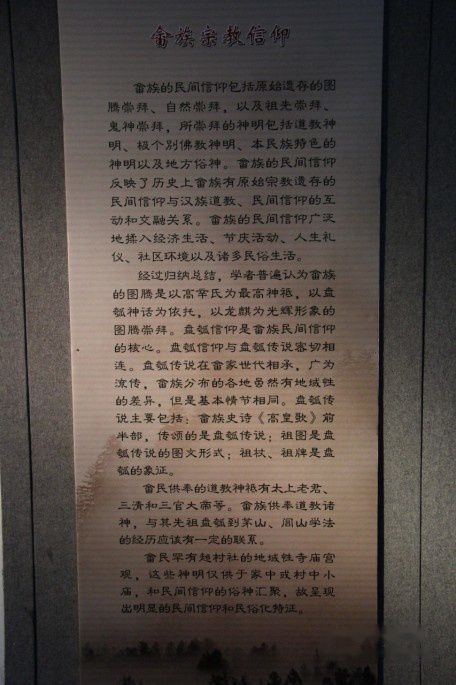 畲族宗教信仰
畲族的民间信仰包括原始遗存的图
腾崇拜、自然崇拜，以及祖先崇拜、
鬼神崇拜，所崇拜的神明包括道教神
明、极个别佛教神明、本民族特色的
神明以及地方俗神。畲族的民间信仰
反映了历史上畲族有原始宗教遗存的
民间信仰与汉族道教、民间信仰的互
动和交融关系。畲族的民间信仰广泛
地揉入经济生活、节庆活动、人生礼
仪、社区环境以及诸多民俗生活。
经过归纳总结，学者普遍认为畲族
的图腾是以高辛氏为最高神祗，以盘
瓠神话为依托，以龙麒为光辉形象的
图腾崇拜。盘瓠信仰是畲族民间信仰
的核心。盘瓠信仰与盘瓠传说密切相
连。盘瓠传说在畲家世代相承，广为
流传，畲族分布的各地虽然有地域性
的差异，但是基本情节相同。盘瓠传
说主要包括：畲族史诗《高皇歌》前
半部，传颂的是盘瓠传说；祖图是盘
瓠传说的图文形式；祖杖、祖牌是盘
瓠的象征。
畲民供奉的道教神祗有太上老君、
三清和三官大帝等。畲族供奉道教诸
神，与其先祖盘瓠到茅山、闾山学法
的经历应该有一定的联系。
畲民罕有超村社的地域性寺庙宫
观，这些神明仅供于家中或村中小
庙，和民间信仰的俗神汇聚，故呈现
出明显的民间信仰和民俗化特征。